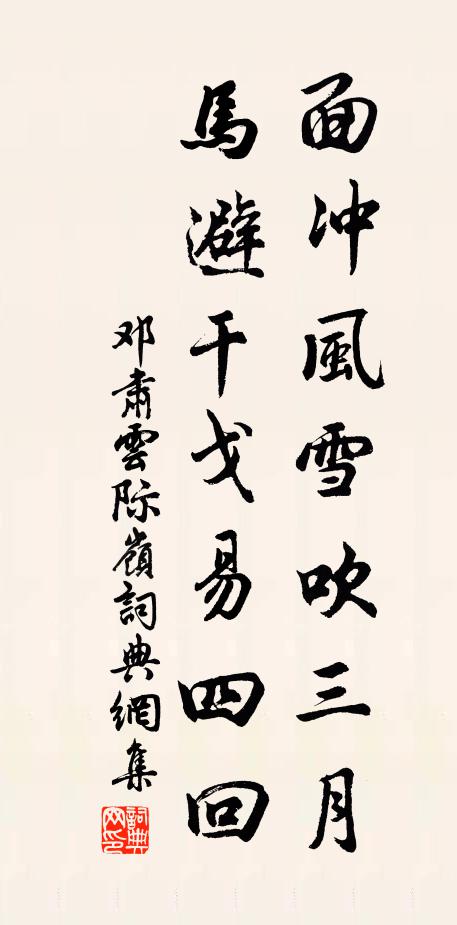 面冲風雪吹三月
馬避干戈易四回
邓肅雲际嶺詞典網集
詞典网印